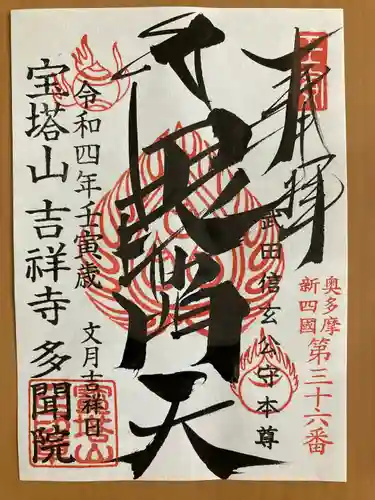 奉拝
奥多摩
新四國
第三十六番
武田信玄公守本尊
毘沙門天
令和四年壬寅歳
文月吉祥日
宝塔山 吉祥寺 多聞院